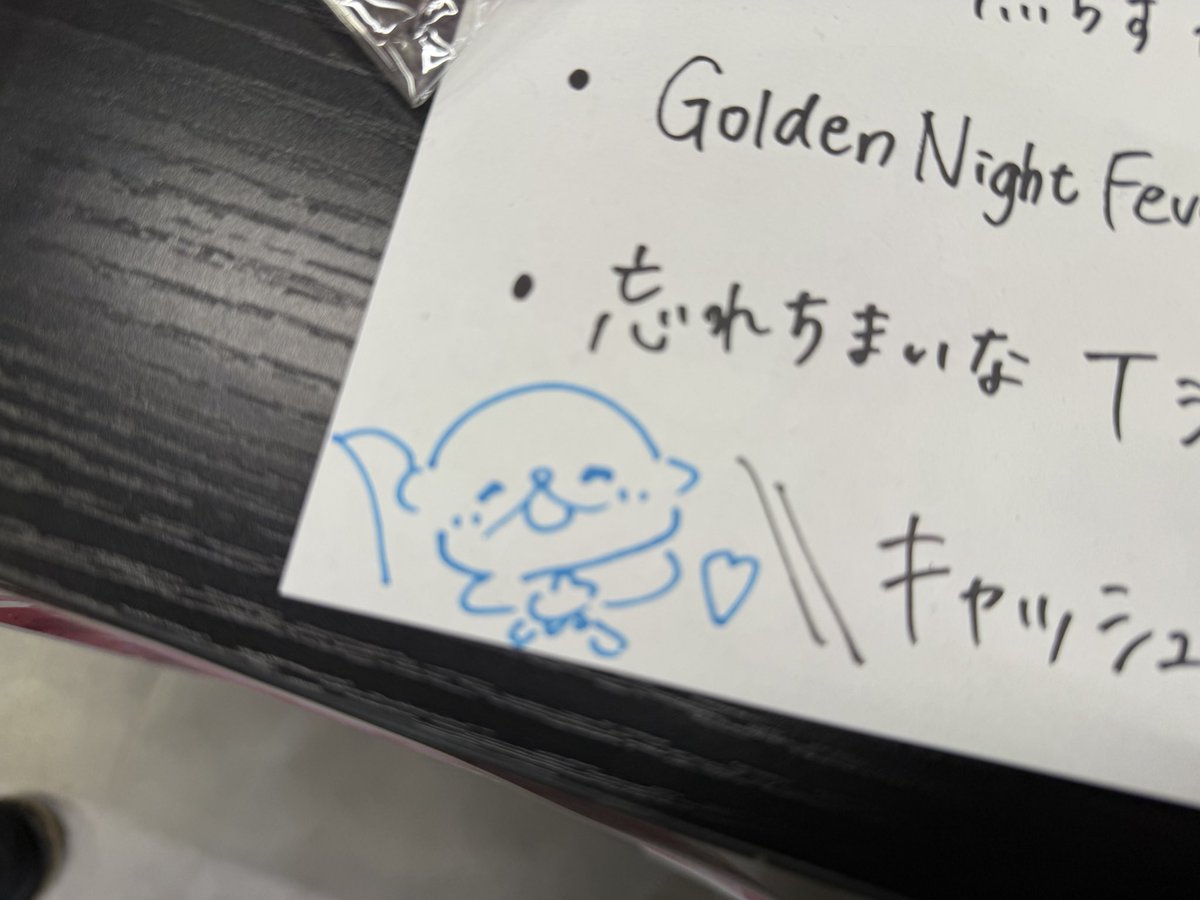 らす
・ Golden Night Fev
・ 忘れちまいな Tシ
\\ キャッシュ